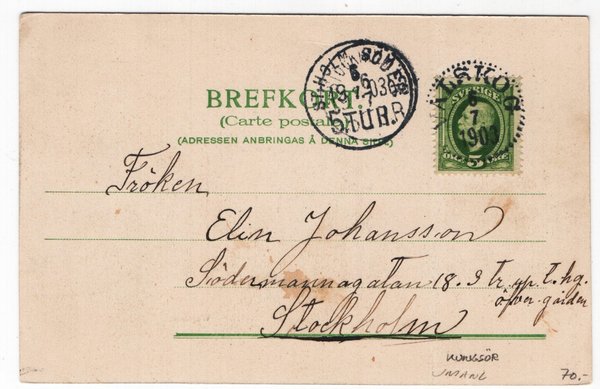 BREFKORT.
(Carte postale)
(ADRESSEN ANBRINGAS Å DENNA SIDA)
VALSKOG
6
7
1903
SVERIGE
5
ÖRE
Fröken
Elin Johansson
Södermannagatan 18. 3 tr. t. hg.
öfver gården
Stockholm
KUNGSÖR
70.-